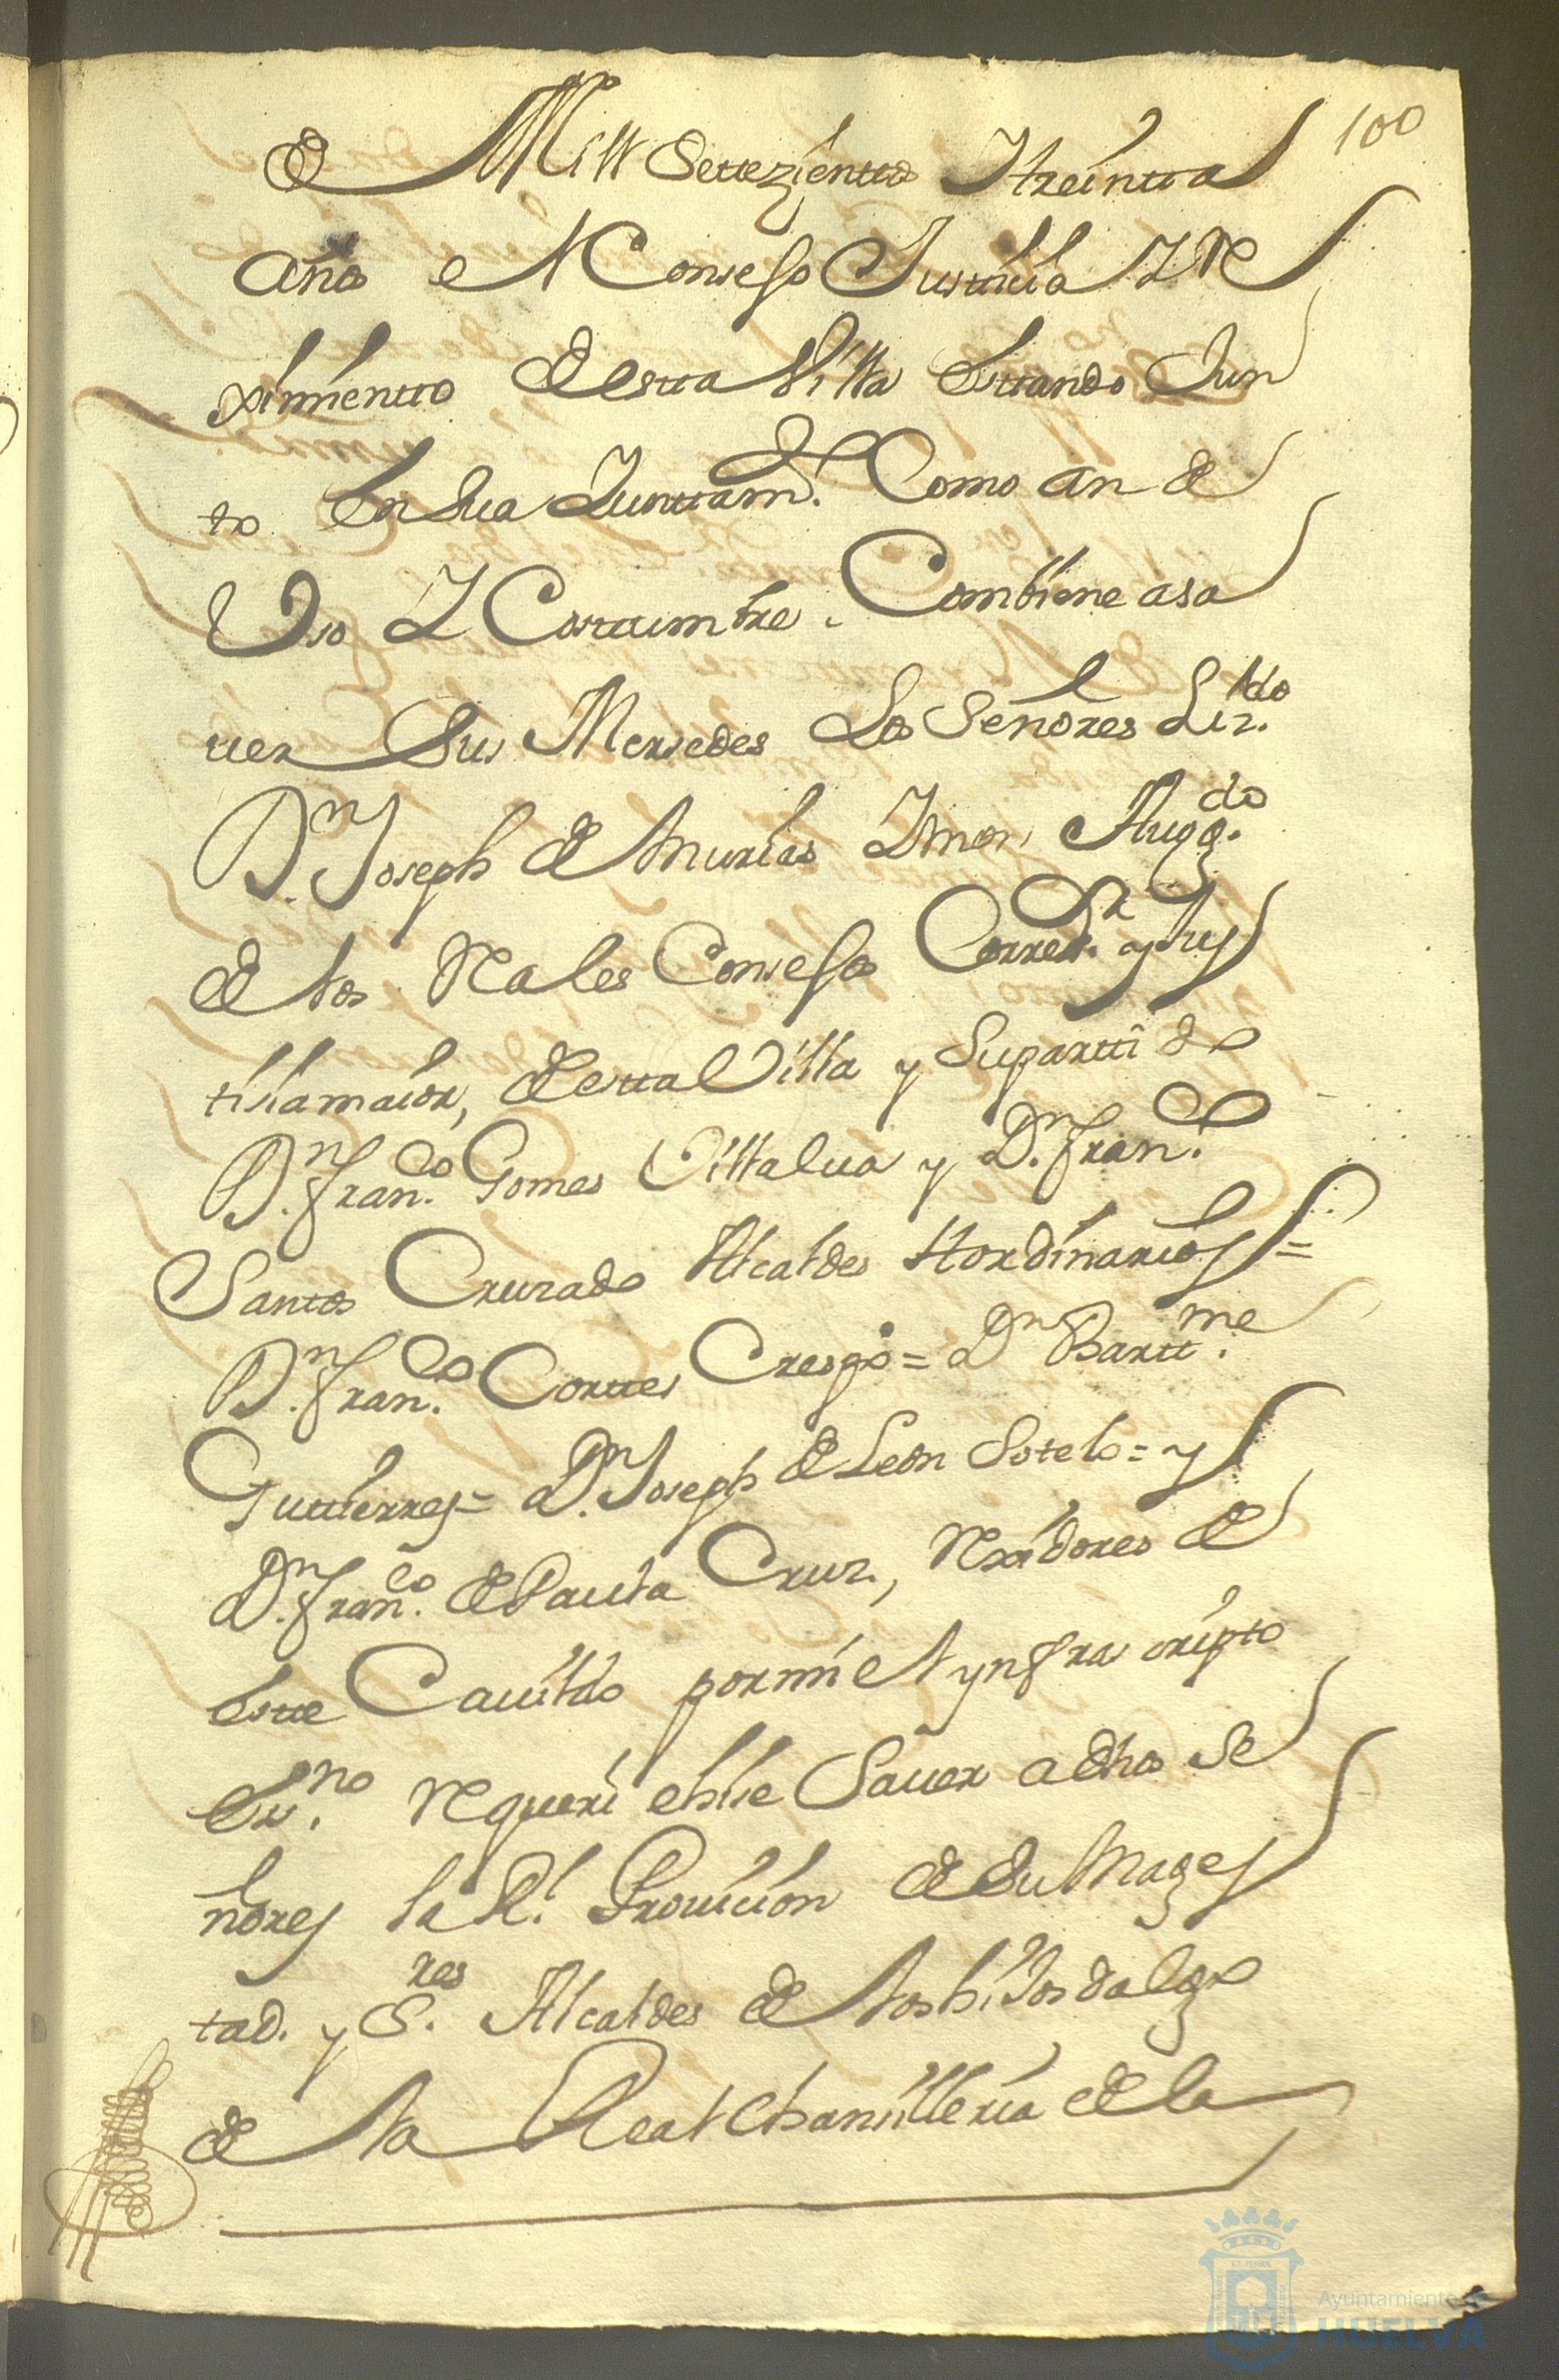 100
de Mill Settezienttos Y treintta
años el Consejo Justticia Y Re
ximientto de estta Villa esttando Jun
to en su a Junttamto. Como an de
Uso Y Costtumbre. Combiene asa
uer Sus Mersedes Los Señores Liz.do
Dn. Joseph de Murias Ymon Abog.do
de los Rales Consejos Corred.or y Jus
tisiamaior, de estta Villa y Suparttido
Dn. Fran.co Gomes Villalua y Dn. Fran.co
Santos Cruzado Alcaldes Hordinarios =
Dn. Fran.co Corttes Crespo = Dn Bartt.me
Guttierres = Dn. Joseph de Leon Sotelo = y
Dn. Fran.co de Paula Cruz, Rexidores de
estte Cauildo por mi el ynfrascripto
Es.no Requeri ehise Sauer adhos Se
ñores la Rl. Prouicion de Su Mages
tad. y S.res Alcaldes de los hiJos dalgo
de la Real Chansilleria de la
Ayuntamiento de
HUELVA